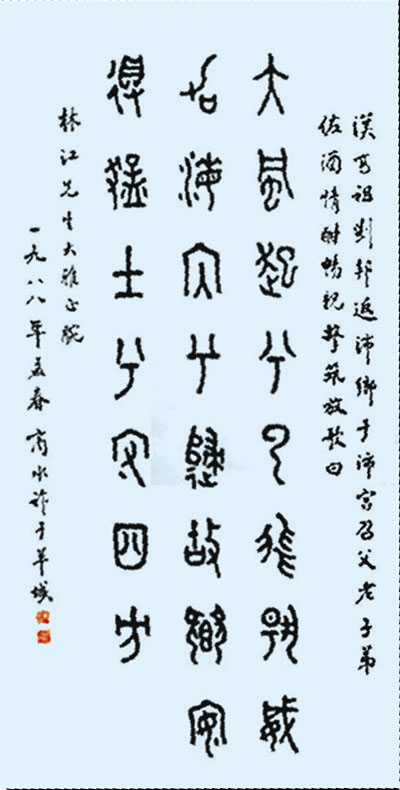 漢高祖劉邦返沛鄉于沛宮召父老子弟
佐酒情酣暢親擊筑放歌曰
大風起兮云飛揚威
加海内兮歸故鄉安
得猛士兮守四方
林江先生大雅正腕
一九八八年孟春商承祚于羊城